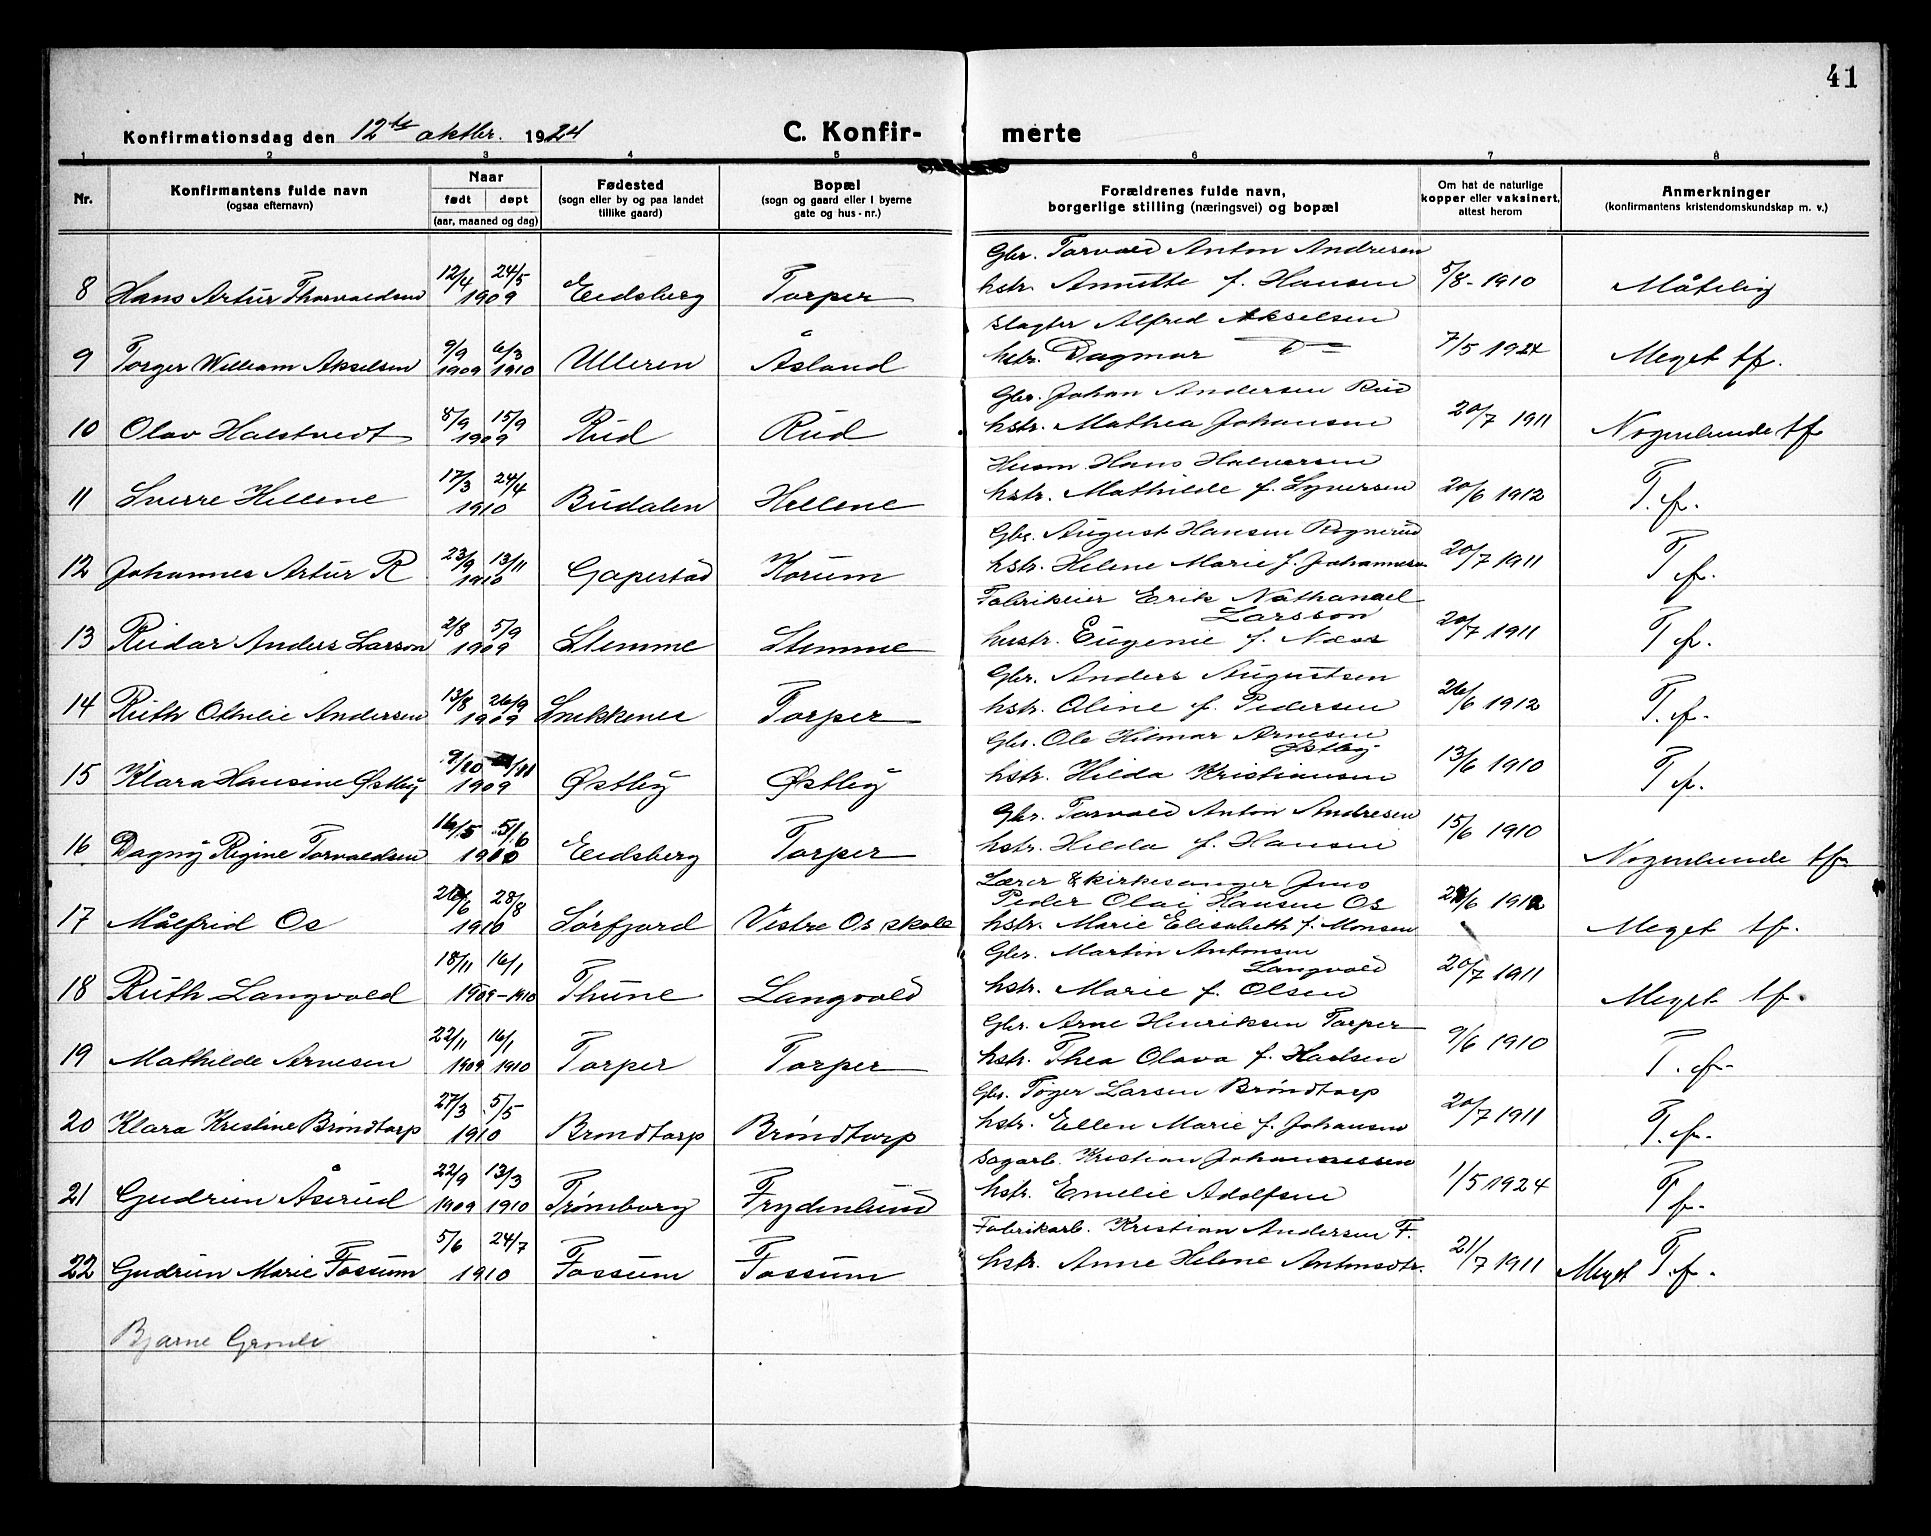 41
Konfirmationsdag den 12te oktbr. 1924 C. Konfir- merte
1 2 3 4 5 6 7 8
Nr. Konfirmantens fulde navn (ogsaa efternavn) Naar født døpt (aar, maaned og dag) Fødested (sogn eller by og paa landet tillike gaard) Bopæl (sogn og gaard eller i byerne gate og hus-nr.) Forældrenes fulde navn, borgerlige stilling (næringsvei) og bopæl Om hat de naturlige kopper eller vaksinert, attest herom Anmerkninger (konfirmantens kristendomskundskap m. v.)
Gbr. Torvald Anton Andresen
8 Hans Artur Thorvaldsen 12/4 24/5 1909 Eidsberg Torper hstr. Annette f. Hansen 5/8 - 1910 Måtelig
Slagter Alfred Akselsen
9 Torger William Akselsen 9/9 1909 6/3 1910 Ulleren Åsland hstr. Dagmar 7/5 1924 Meget tf.
Gbr. Johan Andersen Rud
10 Olav Halstvedt 5/9 15/9 1909 Rud Rud hstr. Mathea Johansen 20/7 1911 Nogenlunde tf
Husm Hans Halvorsen
11 Sverre Hellene 17/3 24/4 1910 Budalen Hellene hstr. Mathilde f. Syversen 20/6 1912 T. f.
Gbr. August Hansen Rognerud
12 Johannes Artur R 23/9 13/11 1910 Gapestad Korum hstr. Helene Marie f. Johannesen 20/7 1911 T f.
Fabrikeier Erik Nathanael Larsson
13 Reidar Anders Larson 2/8 5/9 1909 Stemme Stemme hustr. Eugenie f. Næss 20/7 1911 T f.
Gbr. Anders Augustsen
14 Ruth Othelie Andersen 13/8 26/9 1909 Snekkenes Torper hstr. Oline f. Pedersen 26/6 1912 T. f.
Gbr. Ole Hilmar Arnesen Østby
15 Klara Hansine Østby 9/10 /11 1909 Østby Østby hstr. Hilda Kristiansen 13/6 1910 T f.
Gbr. Torvald Anton Andresen
16 Dagny Regine Torvaldsen 16/5 5/6 1910 Eidsberg Torper hstr. Hilda f. Hansen 15/6 1910 Nogenlunde tf
Lærer & kirkesanger Jens
Peder Olai Hansen Os
17 Målfrid Os 26/6 28/8 1910 Sørfjord Vestre Os skole hstr. Marie Elisabeth f. Monsen /6 1912 Meget tf.
Gbr. Martin Antonsen Langvold
18 Ruth Langvold 18/11 16/1 1909-1910 Thune Langvold hstr. Marie f. Olsen 20/7 1911 Meget tf.
Gbr. Arne Henriksen Torper
19 Mathilde Arnesen 22/11 1909 16/1 1910 Torper Torper hstr. Thea Olava f. Hansen 9/6 1910 T. f.
Gbr. Toger Larsen Brøndtorp
20 Klara Kristine Brøndtorp 27/3 5/5 1910 Brøndtorp Brøndtorp hstr. Ellen Marie f. Johansen 20/7 1911 T. f.
Sagarb. Kristian Johannessen
21 Gudrun Åserud 22/9 1909 13/3 1910 Trømborg Frydenlund hstr. Emelie Adolfsen 1/5 1924 T f.
Fabrikarb. Kristian Andersen F.
22 Gudrun Marie Fossum 5/6 24/7 1910 Fossum Fossum hstr. Anne Helene Antonsdtr. 21/7 1911 Meget T. f.
Bjarne Grønli